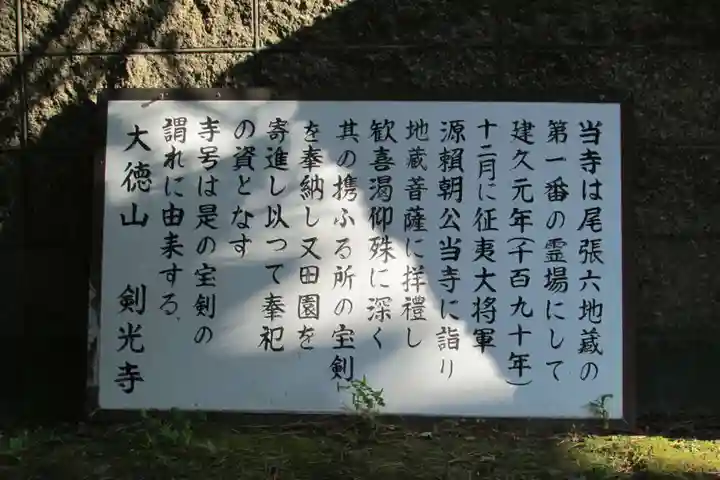 当寺は尾張六地蔵の
第一番の霊場にして
建久元年(千百九十年)
十二月に征夷大将軍
源頼朝公当寺に詣り
地蔵菩薩に拝禮し
歓喜渇仰殊に深く
其の携ふる所の宝剣
を奉納し又田園を
寄進し以つて奉祀
の資となす
寺号は是の宝剣の
謂れに由来する、
大徳山 剣光寺